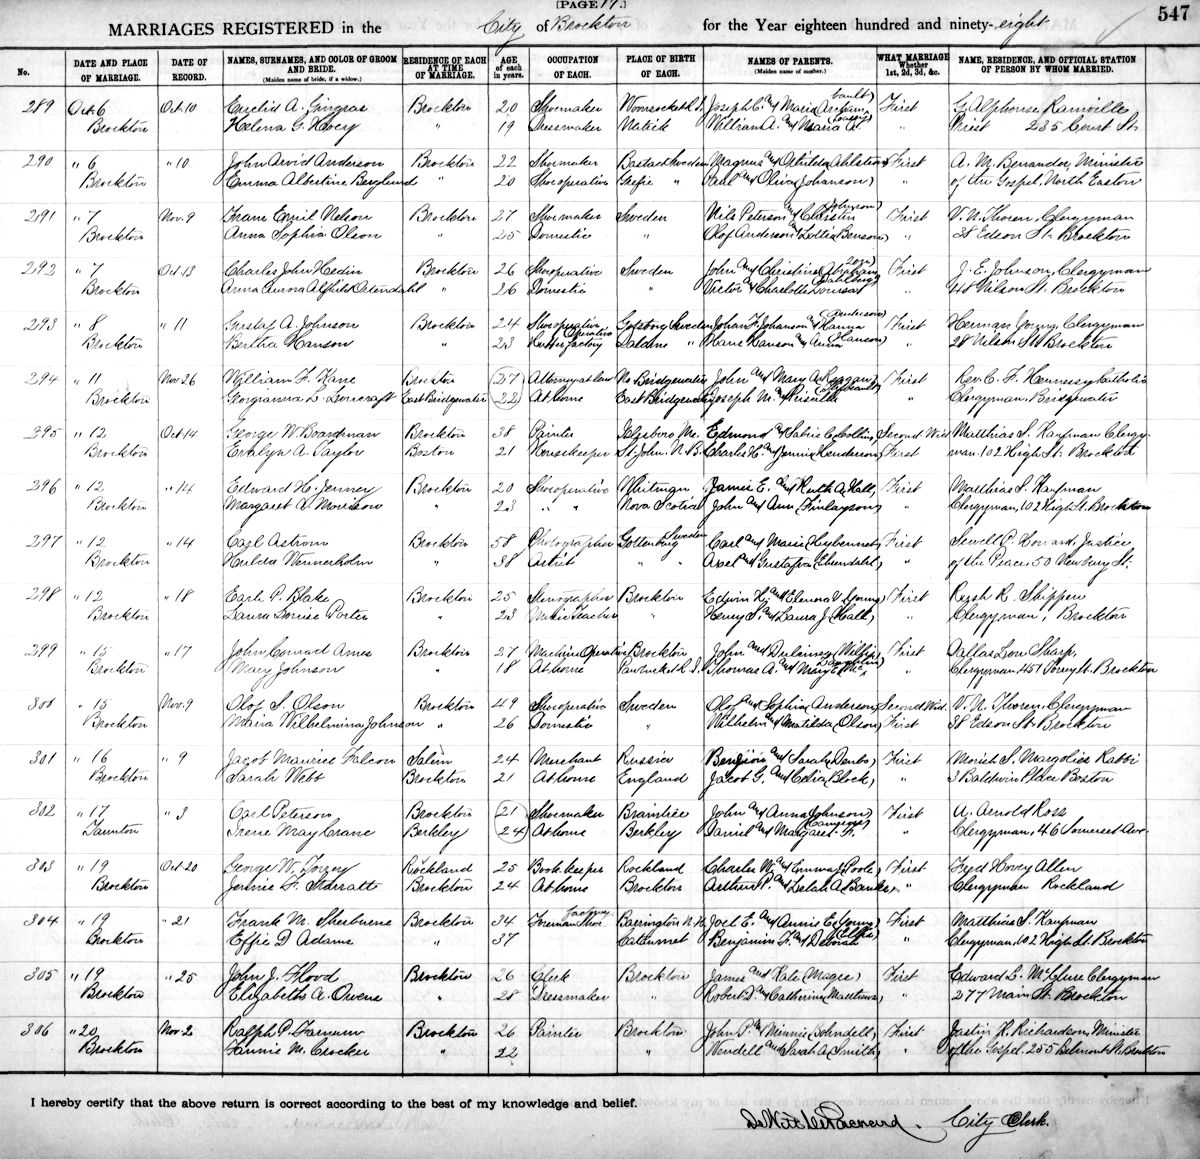 [PAGE 17.]
547
MARRIAGES REGISTERED in the City of Brockton for the Year eighteen hundred and ninety-eight
No. DATE AND PLACE OF MARRIAGE. DATE OF RECORD. NAMES, SURNAMES, AND COLOR OF GROOM AND BRIDE. (Maiden name of bride, if a widow.) RESIDENCE OF EACH AT TIME OF MARRIAGE. AGE of each in years. OCCUPATION OF EACH. PLACE OF BIRTH OF EACH. NAMES OF PARENTS. (Maiden name of mother.) WHAT MARRIAGE Whether 1st, 2d, 3d, &c. NAME, RESIDENCE, AND OFFICIAL STATION OF PERSON BY WHOM MARRIED.
289 Oct. 6 Oct. 10 A. Gingras Brockton 20 Shoemaker Woonsocket R.I. Joseph C. and Maria First G. Alphonse Rainville
Brockton Helena G. Hoey " 19 Dressmaker Natick William A. and Maria A. " Priest 235 Court St.
290 " 6 " 10 John Arvid Anderson Brockton 22 Shoemaker Sweden Magnus and Ahlstrom First A. M. Benander, Minister
Brockton Emma Albertine Berglund " 20 Shoe operative Gefle " and Olivia (Johanson) " of the Gospel, North Easton
291 " 7 Nov. 9 Frans Emil Nelson Brockton 27 Shoemaker Sweden Nils Peterson and Christin (Johnson) First V. N. Thoren, Clergyman
Brockton Anna Sophia Olson " 25 Domestic " Olof Anderson and Lottie (Benson) " 38 Edson St. Brockton
292 " 7 Oct. 13 Charles John Hedin Brockton 26 Shoe operative Sweden John and Christina First J. E. Johnson, Clergyman
Brockton Anna Aurora Ostendahl " 26 Domestic " Victor and Charlotte Louisa (Dahlberg) " 40 Wilson St. Brockton
293 " 8 " 11 Gustaf A. Johnson Brockton 24 Shoe operative Sweden Johan F. Johanson and Hanna (Anderson) First Herman Young, Clergyman
Brockton Bertha Hanson " 23 Operative Factory " Hans Hanson and Anna (Hanson) " 28 Nilsson St. Brockton
294 " 11 Nov 26 William F. Kane Brockton 27 Attorney at law No Bridgewater John and Mary A. (Reagan) First Rev. C. F. Hennessy Catholic
Brockton Georgianna L. East Bridgewater 22 At home East Bridgewater Joseph M. and Priscilla " Clergyman, Bridgewater
295 " 12 Oct. 14 George W. Boardman Brockton 38 Painter Islesboro Me. Edmond and Sabie C. (Collins) Second Wid Matthias S. Kaufman Clergy-
Brockton Evalyn A. Taylor Boston 21 Housekeeper St. John. N.B. Charles H. and Jennie (Henderson) First man. 102 High St. Brockton
296 " 12 " 14 Edward H. Jenney Brockton 20 Shoe operative Whitman James E. and Ruth A. Hall, First Matthias S. Kaufman
Brockton Margaret A. Morrison " 23 " " Nova Scotia John and Ann (Finlayson) " Clergyman, 102 High St. Brockton
297 " 12 " 14 Carl Astrom Brockton 58 Photographer Gottenburg Sweden Carl and Maria First Sewell P. Howard, Justice
Brockton Hulda Wennerholm " 38 Artist " Axel and Gustafva (Ehrendahl) " of the Peace, 50 Newbury St.
298 " 12 " 18 Earl P. Blake Brockton 25 Stenographer Brockton Edwin H. and Elenora V. (Young) First Rush R. Shippen
Brockton Laura Louise Porter " 23 Music Teacher " Henry T. and Laura J. (Hall) " Clergyman, Brockton
299 " 15 " 17 John Conrad Ames Brockton 27 Machine Operative Brockton John and First Dallas Lore Sharp,
Brockton Mary Johnson " 18 At home Pawtucket R.I. Thomas A. and Mary E. (McLaughlin) " Clergyman 457 Torrey St. Brockton
301 " 15 Nov. 9 Olof S. Olson Brockton 49 Shoe operative Sweden Olof and Sophia (Anderson) Second Wid. V. N. Thoren, Clergyman
Brockton Maria Wilhelmina Johnson " 26 Domestic " Wilhelm and Matilda (Olson) First 38 Edson St. Brockton
301 " 16 " 9 Jacob Maurice Falcon Salem 24 Merchant Russia Bension and Sarah (Denbo) First Morish S. Margolies Rabbi
Brockton Sarah Webb Brockton 21 At home England Jacob G. and Celia (Block) " 3 Baldwin Place Boston
302 " 17 " 3 Carl Peterson Brockton 21 Shoemaker Braintree John and Anna (Johnson) First A. Arnold Ross
Taunton Irene May Crane Berkley 24 At home Berkley Daniel and Margaret F. " Clergyman, 46 Somerset Ave.
303 " 19 Oct. 20 George W. Torrey Rockland 25 Book keeper Rockland Charles W. and Emma (Poole) First Fred Hovey Allen
Brockton Jennie F. Sturratt Brockton 24 At home Brockton Arthur P. and Delia A. (Banks) " Clergyman Rockland
304 " 19 " 21 Frank M. Sherburne Brockton 34 Foreman Shoe factory Barrington N.H. Joel E. and Annie E. (Young) First Matthias S. Kaufman
Brockton Effie D. Adams " 37 Calumet Benjamin F. and Deborah (Ellis) " Clergyman, 102 High St. Brockton
305 " 19 " 25 John J. Flood Brockton 26 Clerk Brockton James and Kate (Magee) First Edward L. McClure Clergyman
Brockton Elizabeth A. Owens " 28 Dressmaker " Robert D. and Catherine (Matthews) " 277 Main St. Brockton
306 " 20 Nov 2 Ralph P. Farnum Brockton 26 Painter Brockton John P. and Minnie (Schndell) First Justin R. Richardson, Minister
Brockton Fannie M. Crocker " 22 " Wendell and Sarah A. (Smith) " of the Gospel. 255 Belmont St. Brockton
I hereby certify that the above return is correct according to the best of my knowledge and belief.
DeWitt C. Packard. City Clerk.